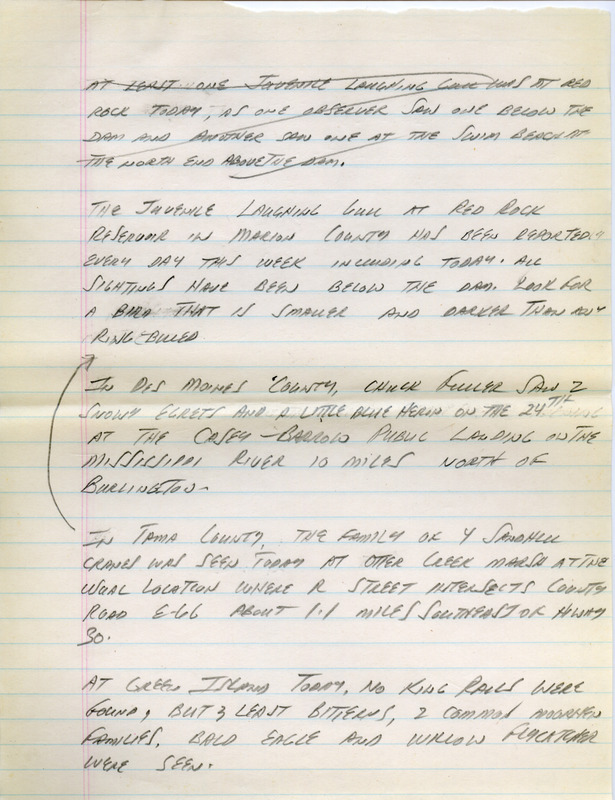 AT LEAST ONE JUVENILE LAUGHING GULL WAS AT RED
ROCK TODAY, AS ONE OBSERVER SAW ONE BELOW THE
DAM AND ANOTHER SAW ONE AT THE SWIM BEACH AT
THE NORTH END ABOVE THE DAM.
THE JUVENILE LAUGHING GULL AT RED ROCK
RESERVOIR IN MARION COUNTY HAS BEEN REPORTED
EVERY DAY THIS WEEK INCLUDING TODAY. ALL
SIGHTINGS HAVE BEEN BELOW THE DAM. LOOK FOR
A BIRD THAT IS SMALLER AND DARKER THAN ANY
RING-BILLED.
IN DES MOINES COUNTY, CHUCK FULLER SAW 2
SNOWY EGRETS AND A LITTLE BLUE HERON ON THE 24TH
AT THE CASEY-BARROW PUBLIC LANDING ON THE
MISSISSIPPI RIVER 10 MILES NORTH OF
BURLINGTON.
IN TAMA COUNTY, THE FAMILY OF 4 SANDHILL
CRANES WAS SEEN TODAY AT OTTER CREEK MARSH AT THE
USUAL LOCATION WHERE R STREET INTERSECTS COUNTY
ROAD E-66 ABOUT 1.1 MILES SOUTHEAST OF HIWAY
30.
AT GREEN ISLAND TODAY, NO KING RAILS WERE
FOUND, BUT 3 LEAST BITTERNS, 2 COMMON MOORHEN
FAMILIES, BALD EAGLE AND WILLOW FLYCATCHER
WERE SEEN.